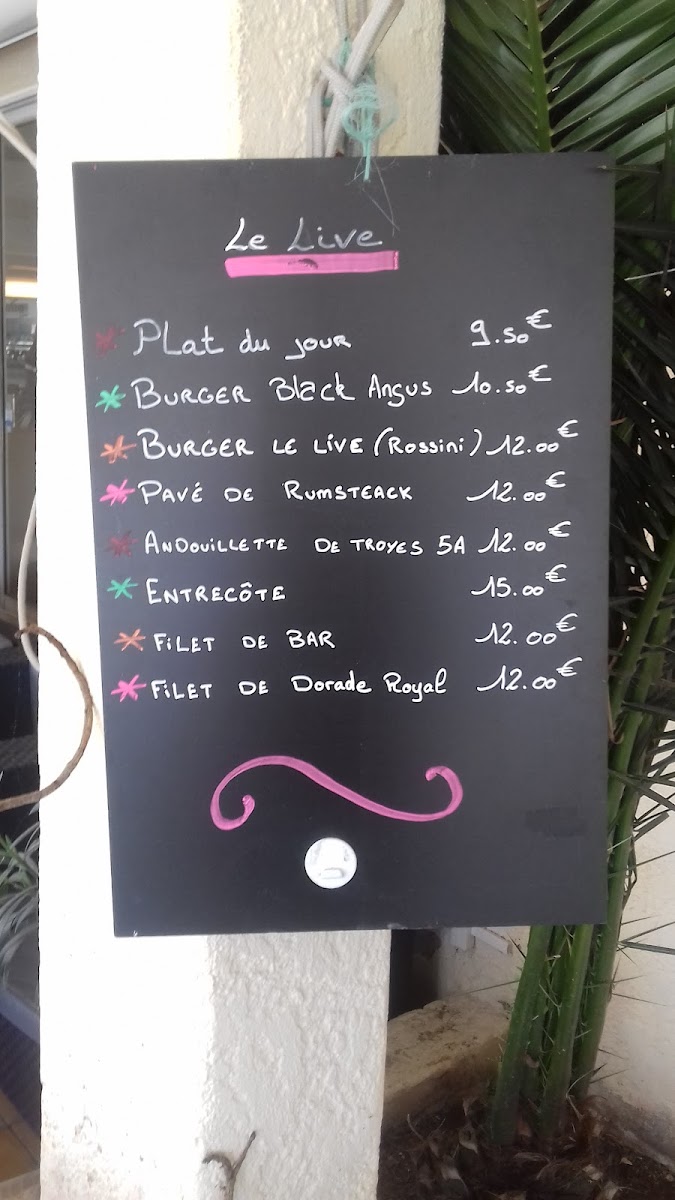 Le Live
Plat du jour 9.50€
Burger Black Angus 10.50€
Burger le Live (Rossini) 12.00€
Pavé de Rumsteack 12.00€
Andouillette de Troyes 5A 12.00€
Entrecôte 15.00€
Filet de Bar 12.00€
Filet de Dorade Royal 12.00€